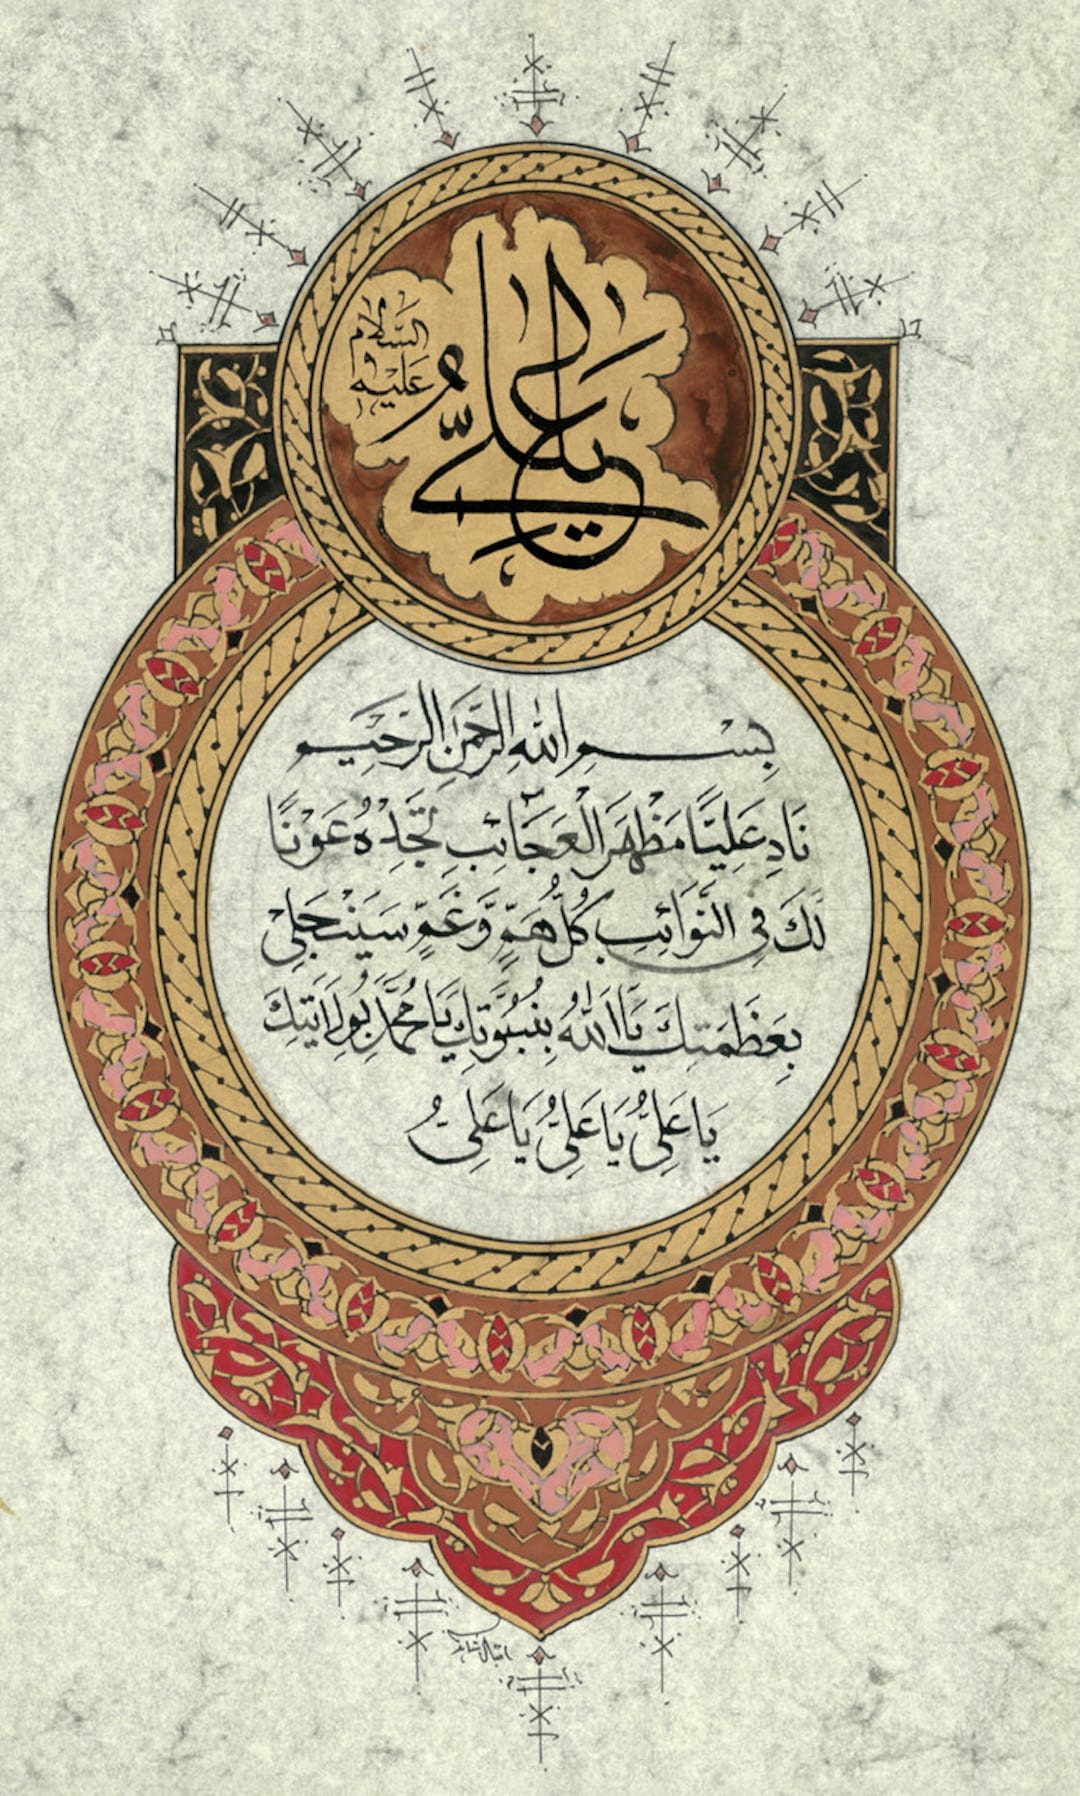 يا علي
عليه السلام
بِسْمِ اللهِ الرَّحْمَنِ الرَّحِيْمِ
نَادِ عَلِيًّا مَظْهَرَ الْعَجَائِبِ تَجِدْهُ عَوْنًا
لَّكَ فِي النَّوَائِبِ كُلُّ هَمٍّ وَّغَمٍّ سَيَنْجَلِيْ
بِعَظَمَتِكَ يَا اَللهُ بِنُبُوَّتِكَ يَا مُحَمَّدُ بِوِلَايَتِكَ
يَا عَلِيُّ يَا عَلِيُّ يَا عَلِيُّ